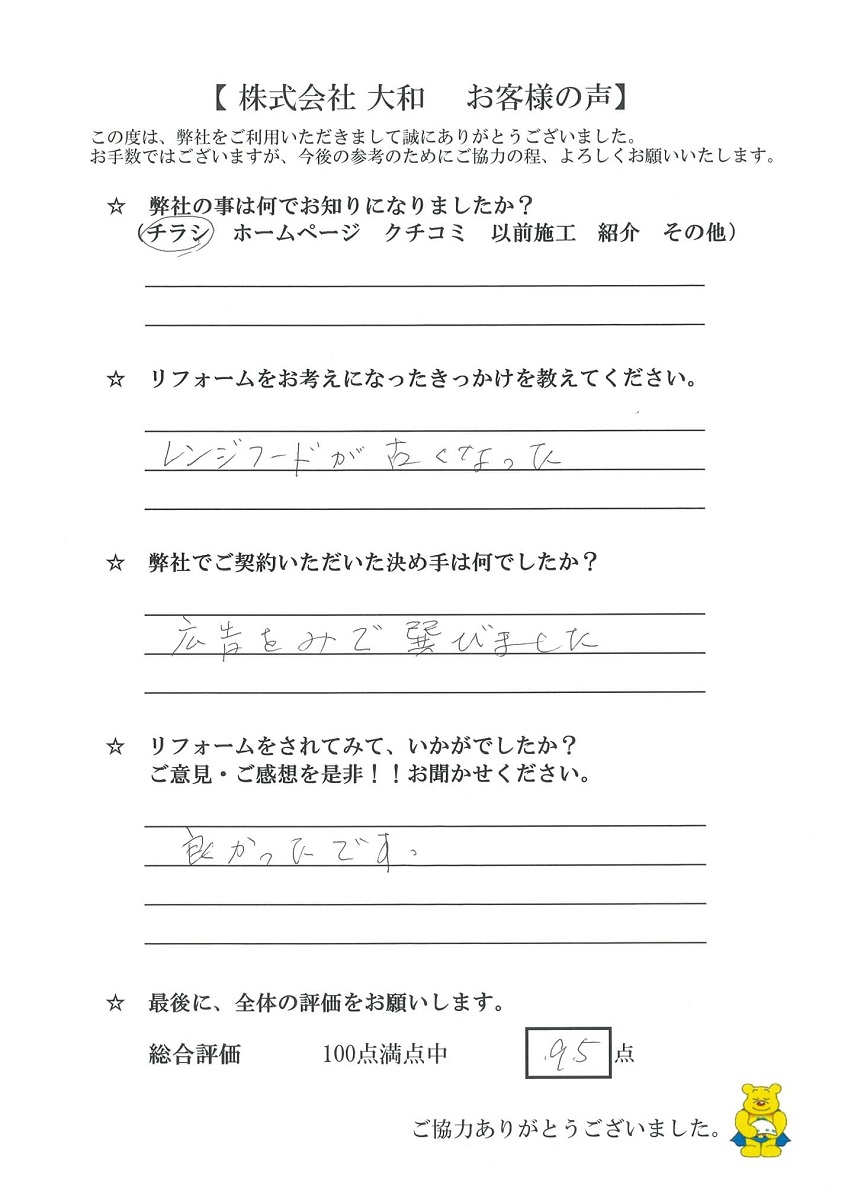 【 株式会社 大和 お客様の声】
この度は、弊社をご利用いただきまして誠にありがとうございました。
お手数ではございますが、今後の参考のためにご協力の程、よろしくお願いいたします。
☆ 弊社の事は何でお知りになりましたか？
（チラシ ホームページ クチコミ 以前施工 紹介 その他）
☆ リフォームをお考えになったきっかけを教えてください。
レンジフードが古くなった
☆ 弊社でご契約いただいた決め手は何でしたか？
広告をみて選びました
☆ リフォームをされてみて、いかがでしたか？
ご意見・ご感想を是非！！お聞かせください。
良かったです。
☆ 最後に、全体の評価をお願いします。
総合評価 100点満点中 95 点
ご協力ありがとうございました。